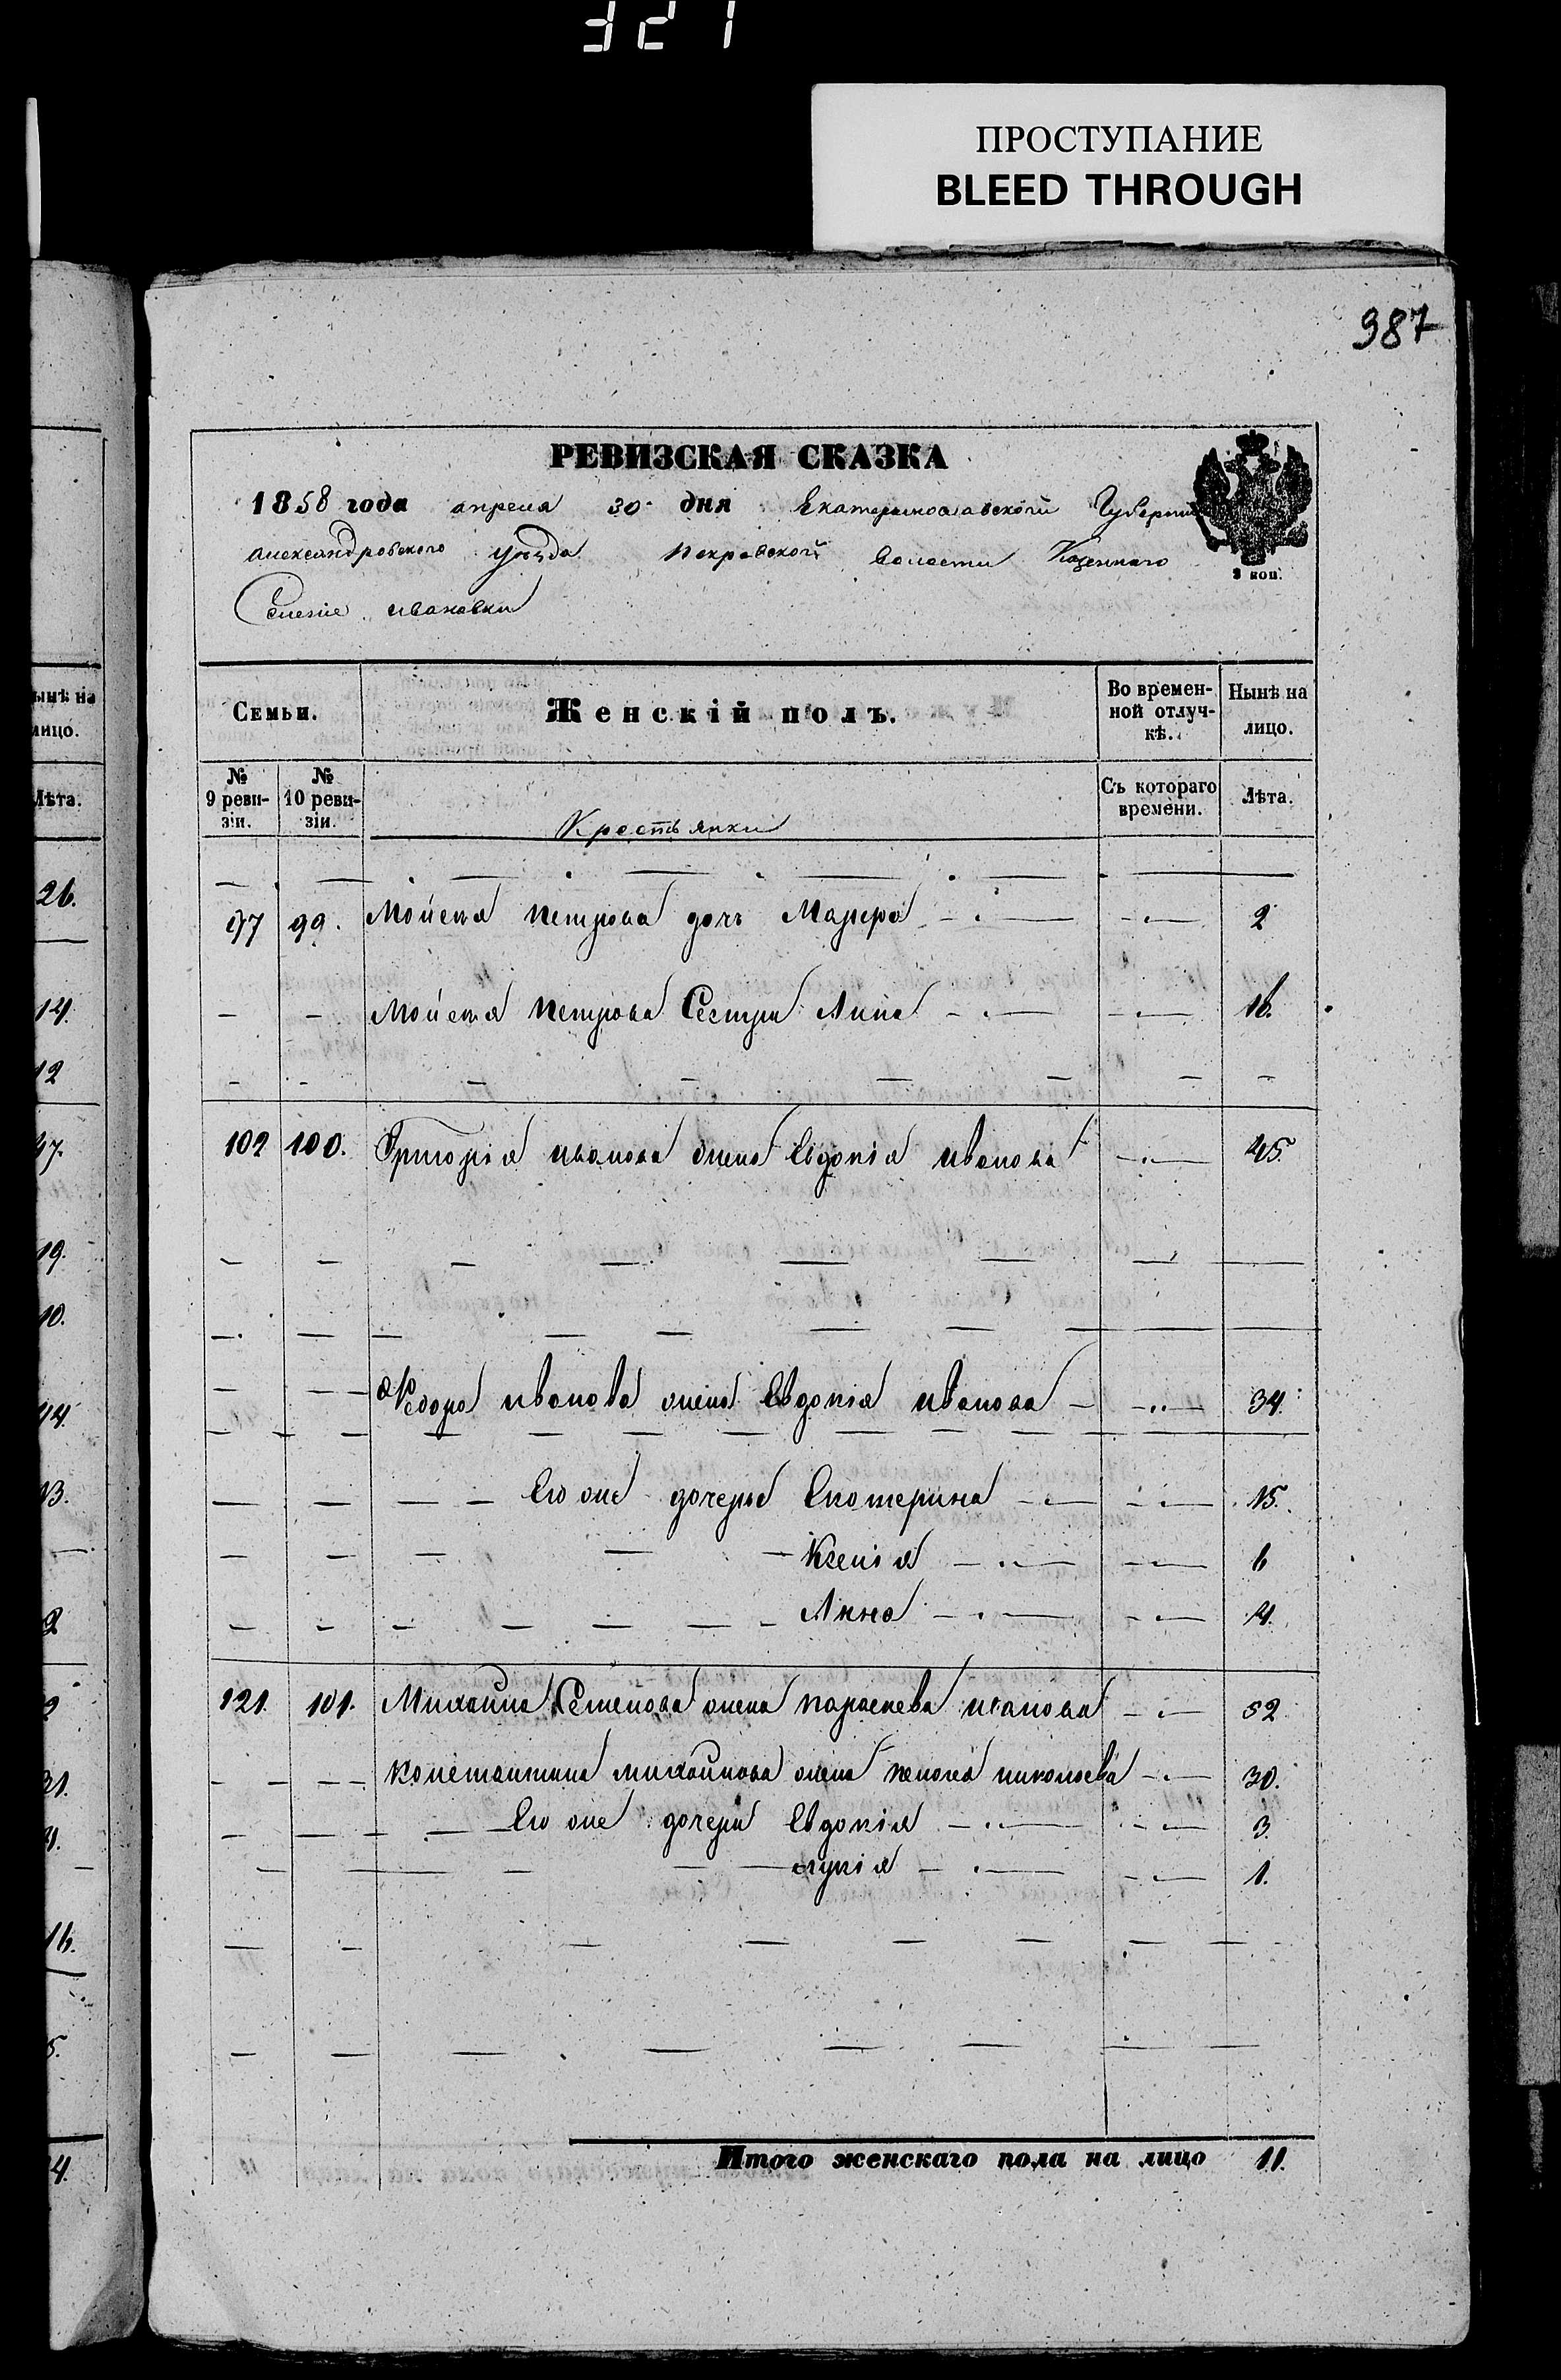 321
ПРОСТУПАНИЕ
BLEED THROUGH
987
РЕВИЗСКАЯ СКАЗКА
1858 года апреля 30 дня Екатеринославской Губернии
Александровского уезда Покровской волости Казенного
Селение ивановки
3 коп.
Семьи. Женскій полъ. Во времен- Нынѣ на
ной отлуч- лицо.
кѣ.
№ № Съ котораго Лѣта.
9 реви- 10 реви- времени.
зіи. зіи.
Крестьянки
97 99. Мойсея петрова дочь Марфа 2
Мойсея петрова Сестра Анна 16.
102 100. Григорія иванова жена Евдокія иванова 45.
Федора иванова жена Евдокія иванова 34.
Его же дочери Екатерина 15.
Ксенія 6
Анна 4.
121. 101. Михаила Семенова жена параскева иванова 52
константина михайлова жена николаева 30.
Его же дочери Евдокія 3.
1.
Итого женскаго пола на лицо 11.
ынѣ на
лицо.
Лѣта.
26.
14.
12
47.
19.
10.
44.
13.
2
2
31.
4.
16.
5.
4.